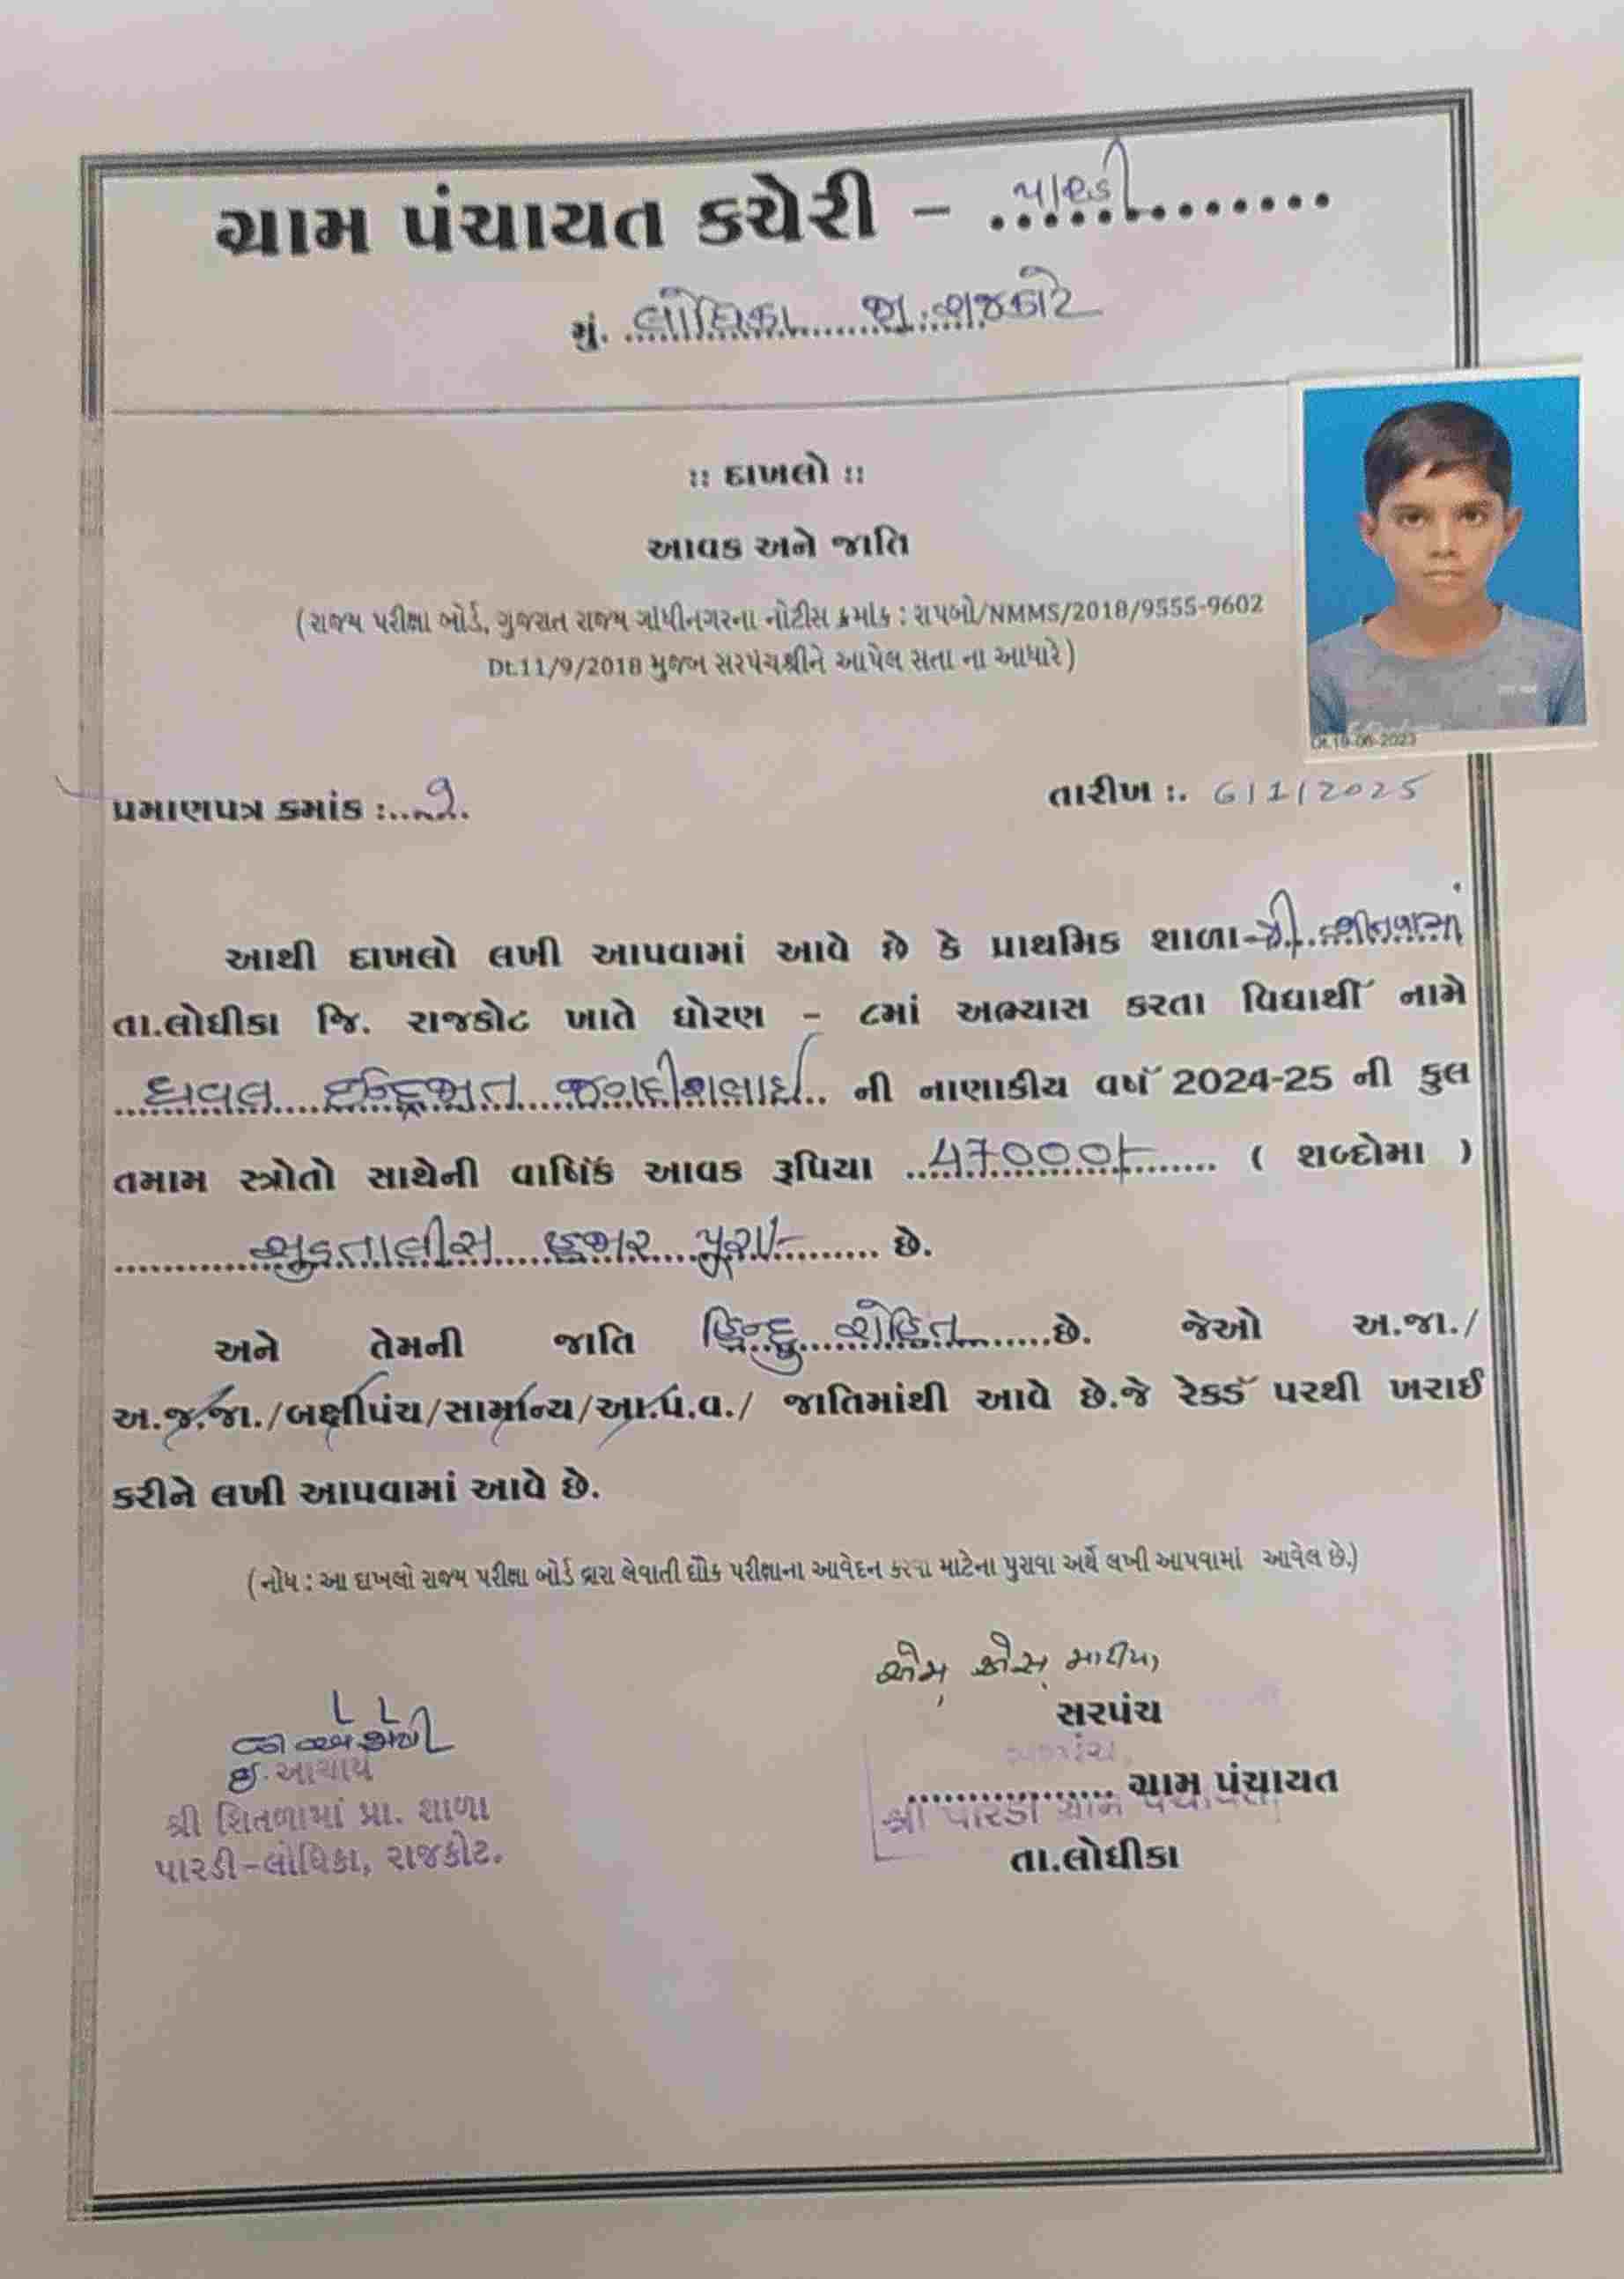 ગ્રામ પંચાયત કચેરી - પારડી
મું. લોધિકા જી. રાજકોટ
:: દાખલો ::
આવક અને જાતિ
(રાજ્ય પરીક્ષા બોર્ડ, ગુજરાત રાજ્ય ગાંધીનગરના નોટીસ ક્રમાંક : રાપબો/NMMS/2018/9555-9602
Dt.11/9/2018 મુજબ સરપંચશ્રીને આપેલ સતા ના આધારે)
Dt.19-06-2023
પ્રમાણપત્ર કમાંક :
તારીખ :. 6/1/2025
આથી દાખલો લખી આપવામાં આવે છે કે પ્રાથમિક શાળા-શ્રી
તા.લોધીકા જિ. રાજકોટ ખાતે ધોરણ - ૮માં અભ્યાસ કરતા વિદ્યાર્થી નામે
ધવલ ઈન્દ્રજીત જગદીશભાઈ ની નાણાકીય વર્ષ 2024-25 ની કુલ
તમામ સ્ત્રોતો સાથેની વાર્ષિક આવક રૂપિયા 47000/- ( શબ્દોમા )
સુડતાલીસ હજાર પુરા/- છે.
અને તેમની જાતિ હિન્દુ રોહિત છે. જેઓ અ.જા./
અ.જ.જા./બક્ષીપંચ/સામાન્ય/આ.પ.વ./ જાતિમાંથી આવે છે.જે રેકર્ડ પરથી ખરાઈ
કરીને લખી આપવામાં આવે છે.
(નોધ : આ દાખલો રાજ્ય પરીક્ષા બોર્ડ દ્વારા લેવાતી શૈક્ષ પરીક્ષાના આવેદન કરવા માટેના પુરાવા અર્થે લખી આપવામાં આવેલ છે.)
એમ એસ મારીયા
સરપંચ
સરપંચ
ગ્રામ પંચાયત
શ્રી પારડી ગ્રામ પંચાયત
તા.લોધીકા
ઈ. આચાર્ય
શ્રી શિતળામાં પ્રા. શાળા
પારડી-લોધિકા, રાજકોટ.